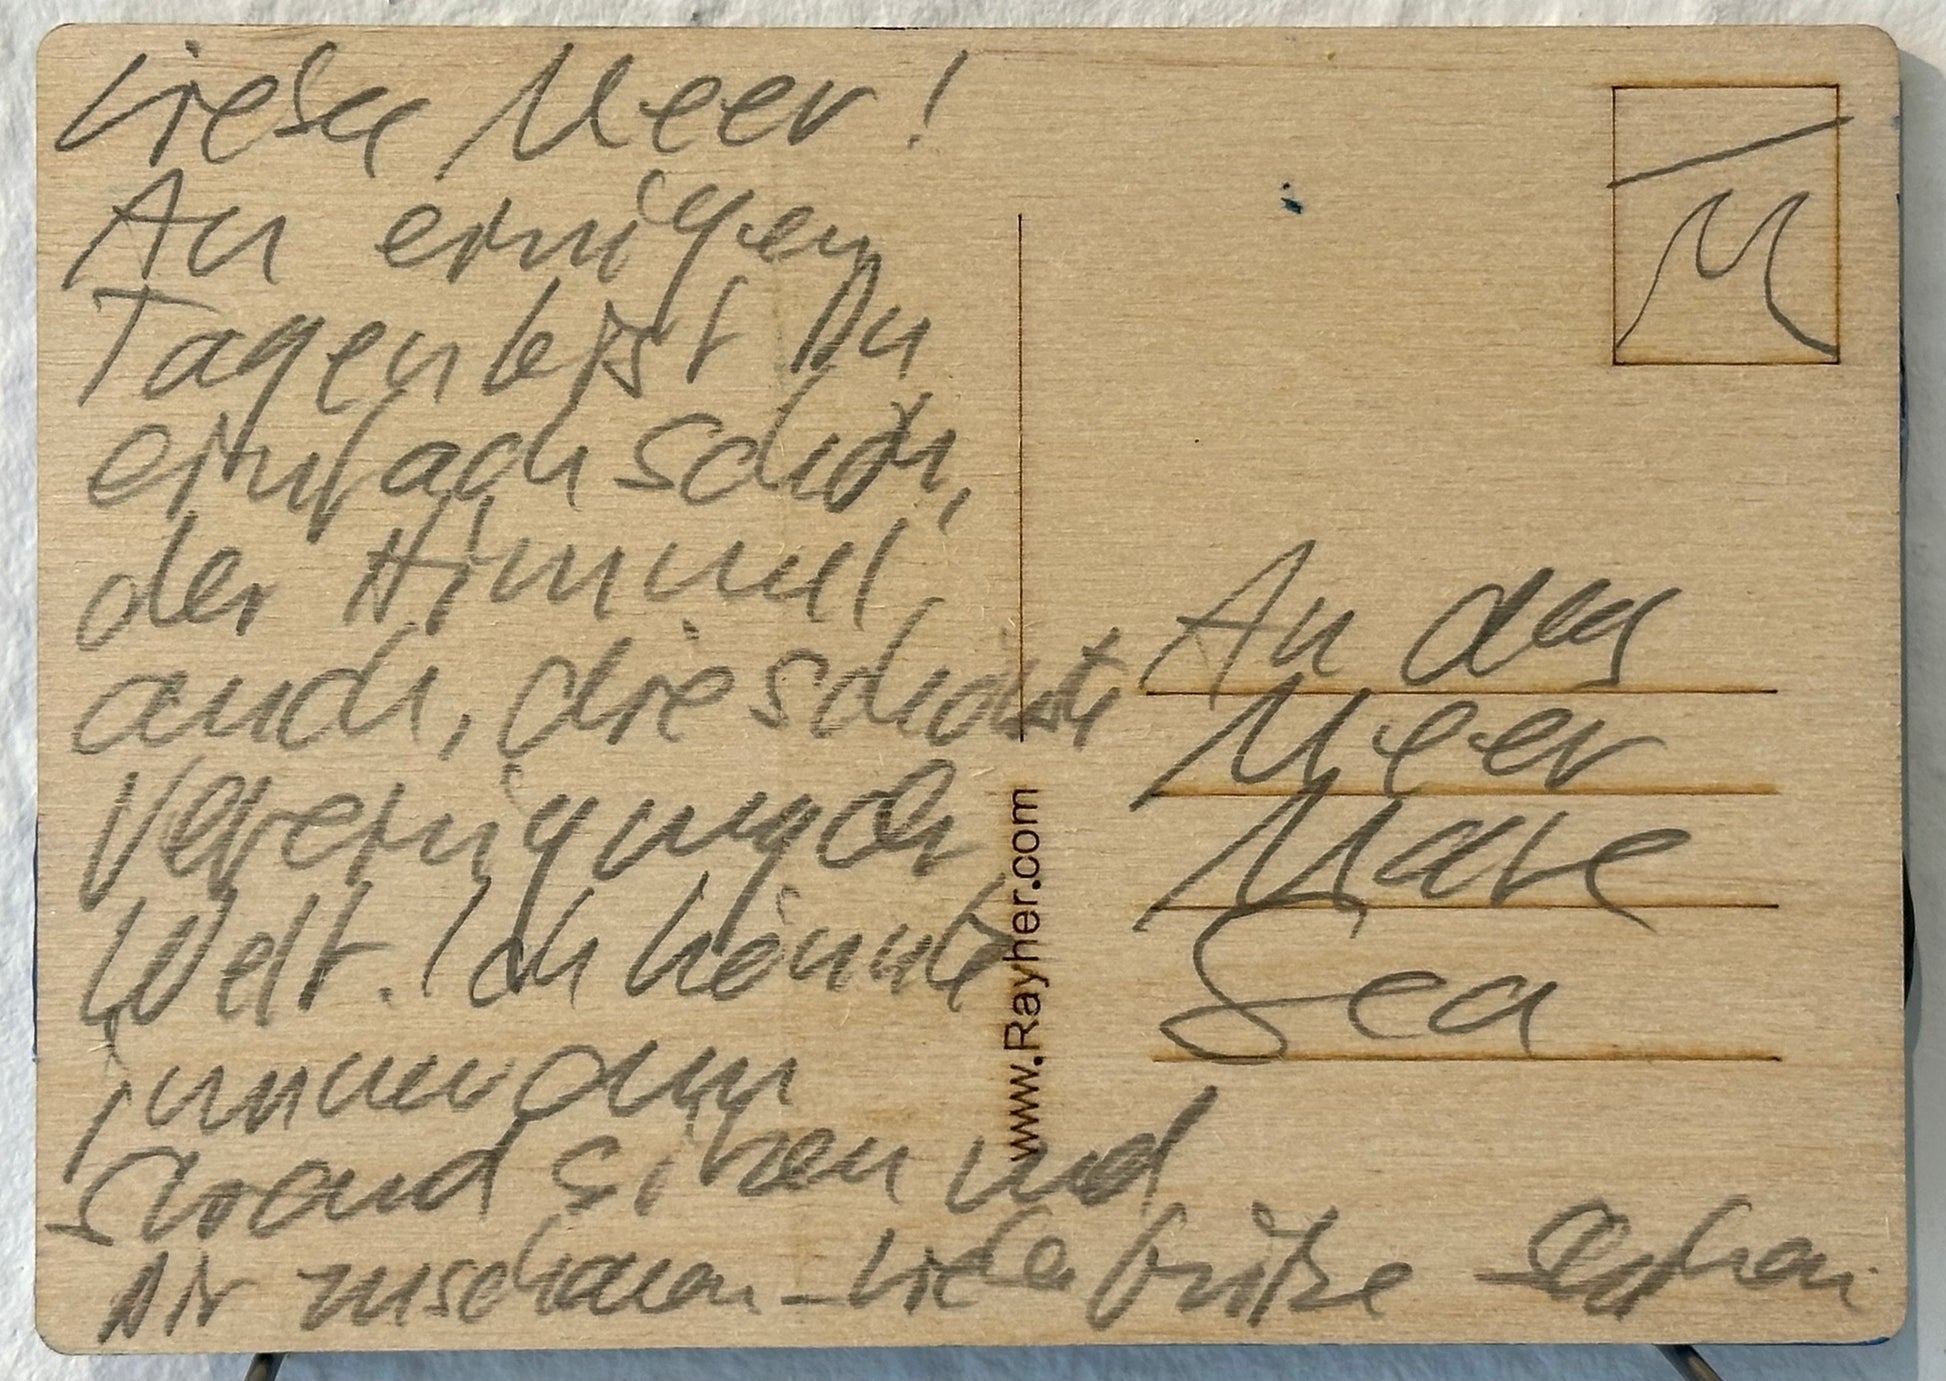 Liebes Meer!
An einigen
Tagen bist Du
einfach schön,
der Himmel
auch, die schönste
Vereinigung der
Welt. Ich könnte
immer am
Strand sitzen und
Dir zuschauen – Liebe Grüße
An das
Meer
Mare
Sea
www.Rayher.com